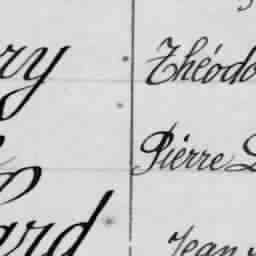 ry Théodo
Pierre
ard Jean